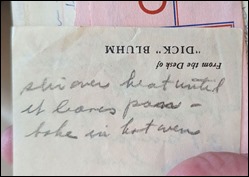 From the Desk of
"DICK" BLUHM
stir over heat until
it leaves pan -
bake in hot oven